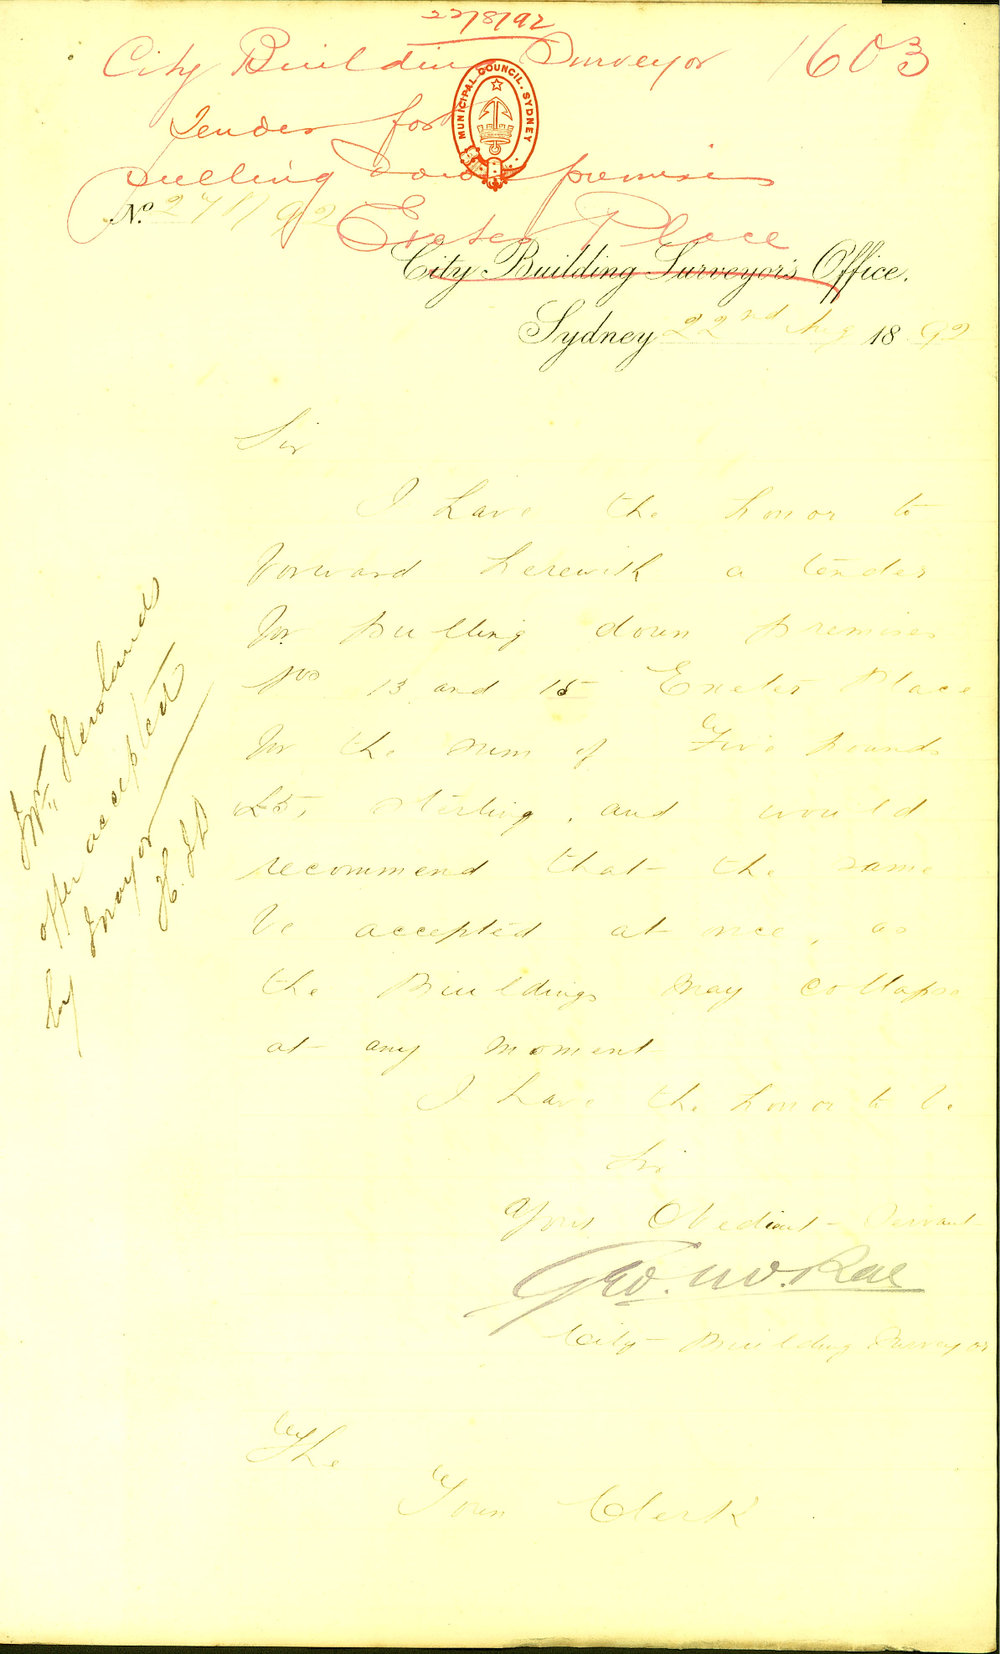 22/8/92
City Building Surveyor 1603
Tender for
pulling down premises
Exeter Place
MUNICIPAL COUNCIL. SYDNEY
No. /92
City Building Surveyor's Office.
Sydney 22nd Aug 1892
Sir
I have the honor to
forward herewith a tender
for pulling down premises
Nos 13 and 15 Exeter Place
for the sum of Five pounds
£5, sterling, and would
recommend that the same
be accepted at once, as
the Buildings may collapse
at any moment
I have the honor to be
Sir
Your Obedient Servant
Geo. McRae
City Building Surveyor
The
Town Clerk
offer accepted
by Mayor